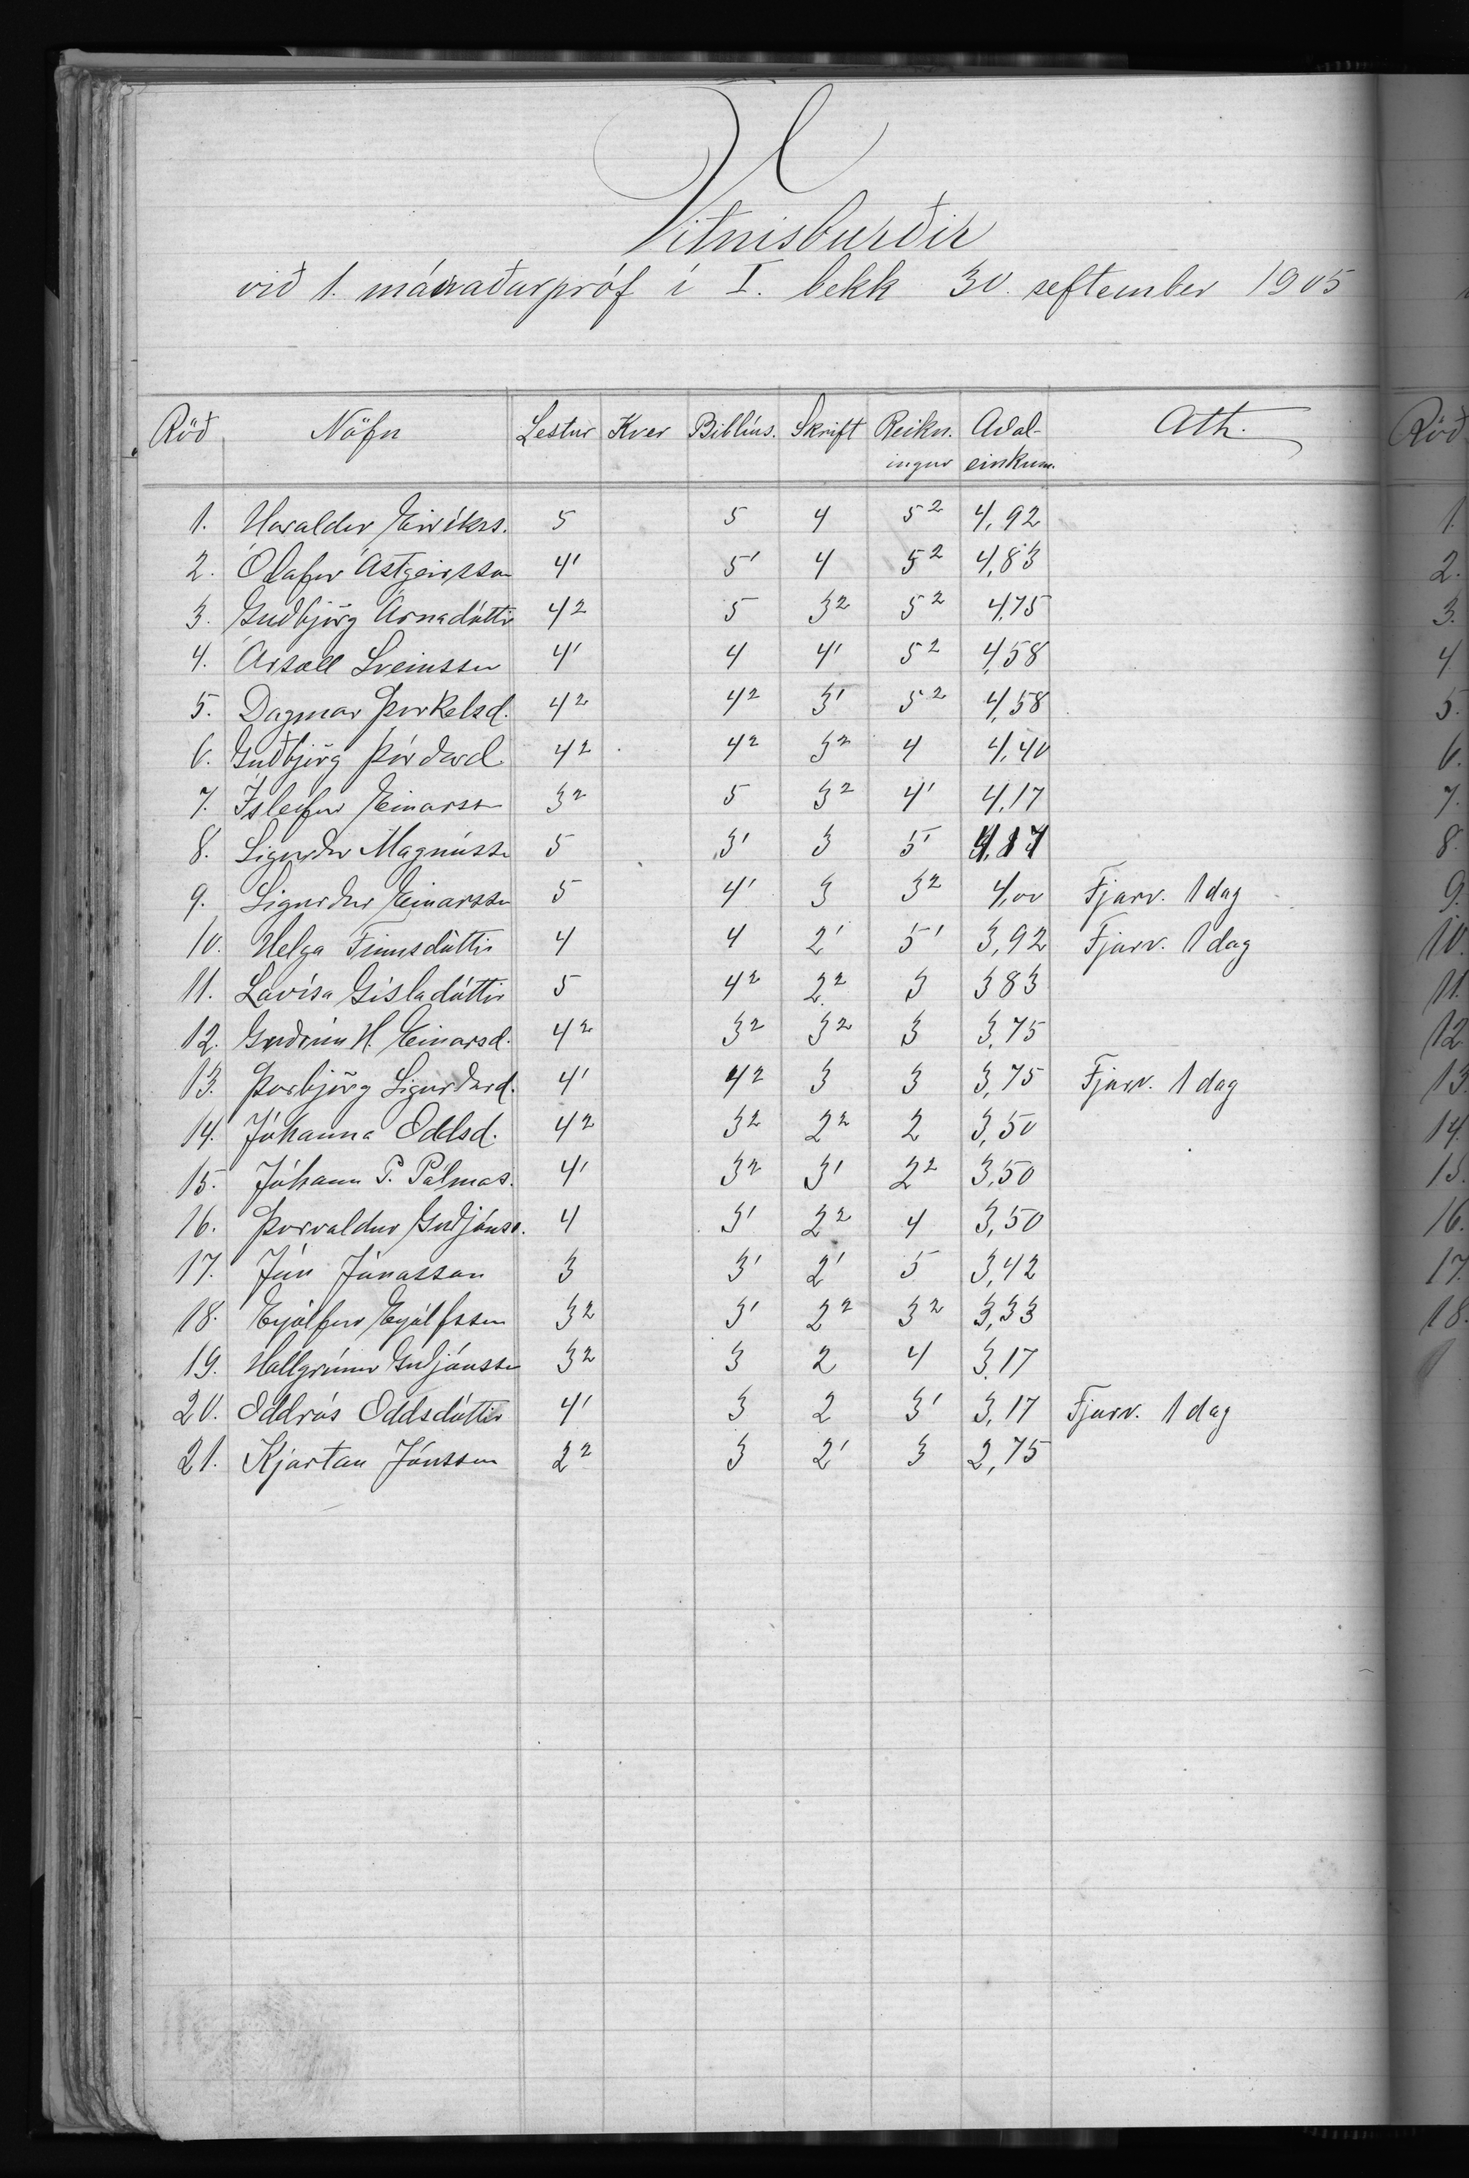 Vitnisburðir
við 1. mánaðarpróf í I. bekk 30. september 1905
Röð Nöfn Lestur Kver Biblíus. Skrift Reikn. Aðal- Ath.
ingur einkunn.
1. Haraldur Eiríkss. 5 5 4 5² 4,92
2. Ólafur Ástgeirsson 4' 5' 4 5² 4,83
3. Guðbjörg Árnadóttir 4² 5 3² 5² 4,75
4. Ársæll Sveinsson 4' 4 4' 5² 4,58
5. Dagmar Þorkelsd. 4² 4² 3' 5² 4,58
6. Guðbjörg Þórðard. 4² 4² 3² 4 4,40
7. Ísleifur Einarsson 3² 5 3² 4' 4,17
8. Sigurður Magnússon 5 3' 3 5' 4,17
9. Sigurður Einarsson 5 4' 3 3² 4,00 Fjarv. 1 dag
10. Helga Finnsdóttir 4 4 2' 5' 3,92 Fjarv. 1 dag
11. Lovísa Gísladóttir 5 4² 2² 3 383
12. Guðrún H. Einarsd. 4² 3² 3² 3 3,75
13. Þorbjörg Sigurðard. 4' 4² 3 3 3,75 Fjarv. 1 dag
14. Jóhanna Oddsd. 4² 3² 2² 2 3,50
15. Jóhann P. Pálmas. 4' 3² 3' 2² 3,50
16. Þorvaldur Guðjónss. 4 3' 2² 4 3,50
17. Jón Jónasson 3 3' 2' 5 3,42
18. Eyjólfur Eyjólfsson 3² 3' 2² 3² 3,33
19. Hallgrímur Guðjónsson 3² 3 2 4 3,17
20. Oddrós Oddsdóttir 4' 3 2 3' 3,17 Fjarv. 1 dag
21. Kjartan Jónsson 2² 3 2' 3 2,75
Röð
1.
2.
3.
4
5.
6.
7.
8.
9.
10.
11.
12
13.
14.
15.
16.
17.
18.